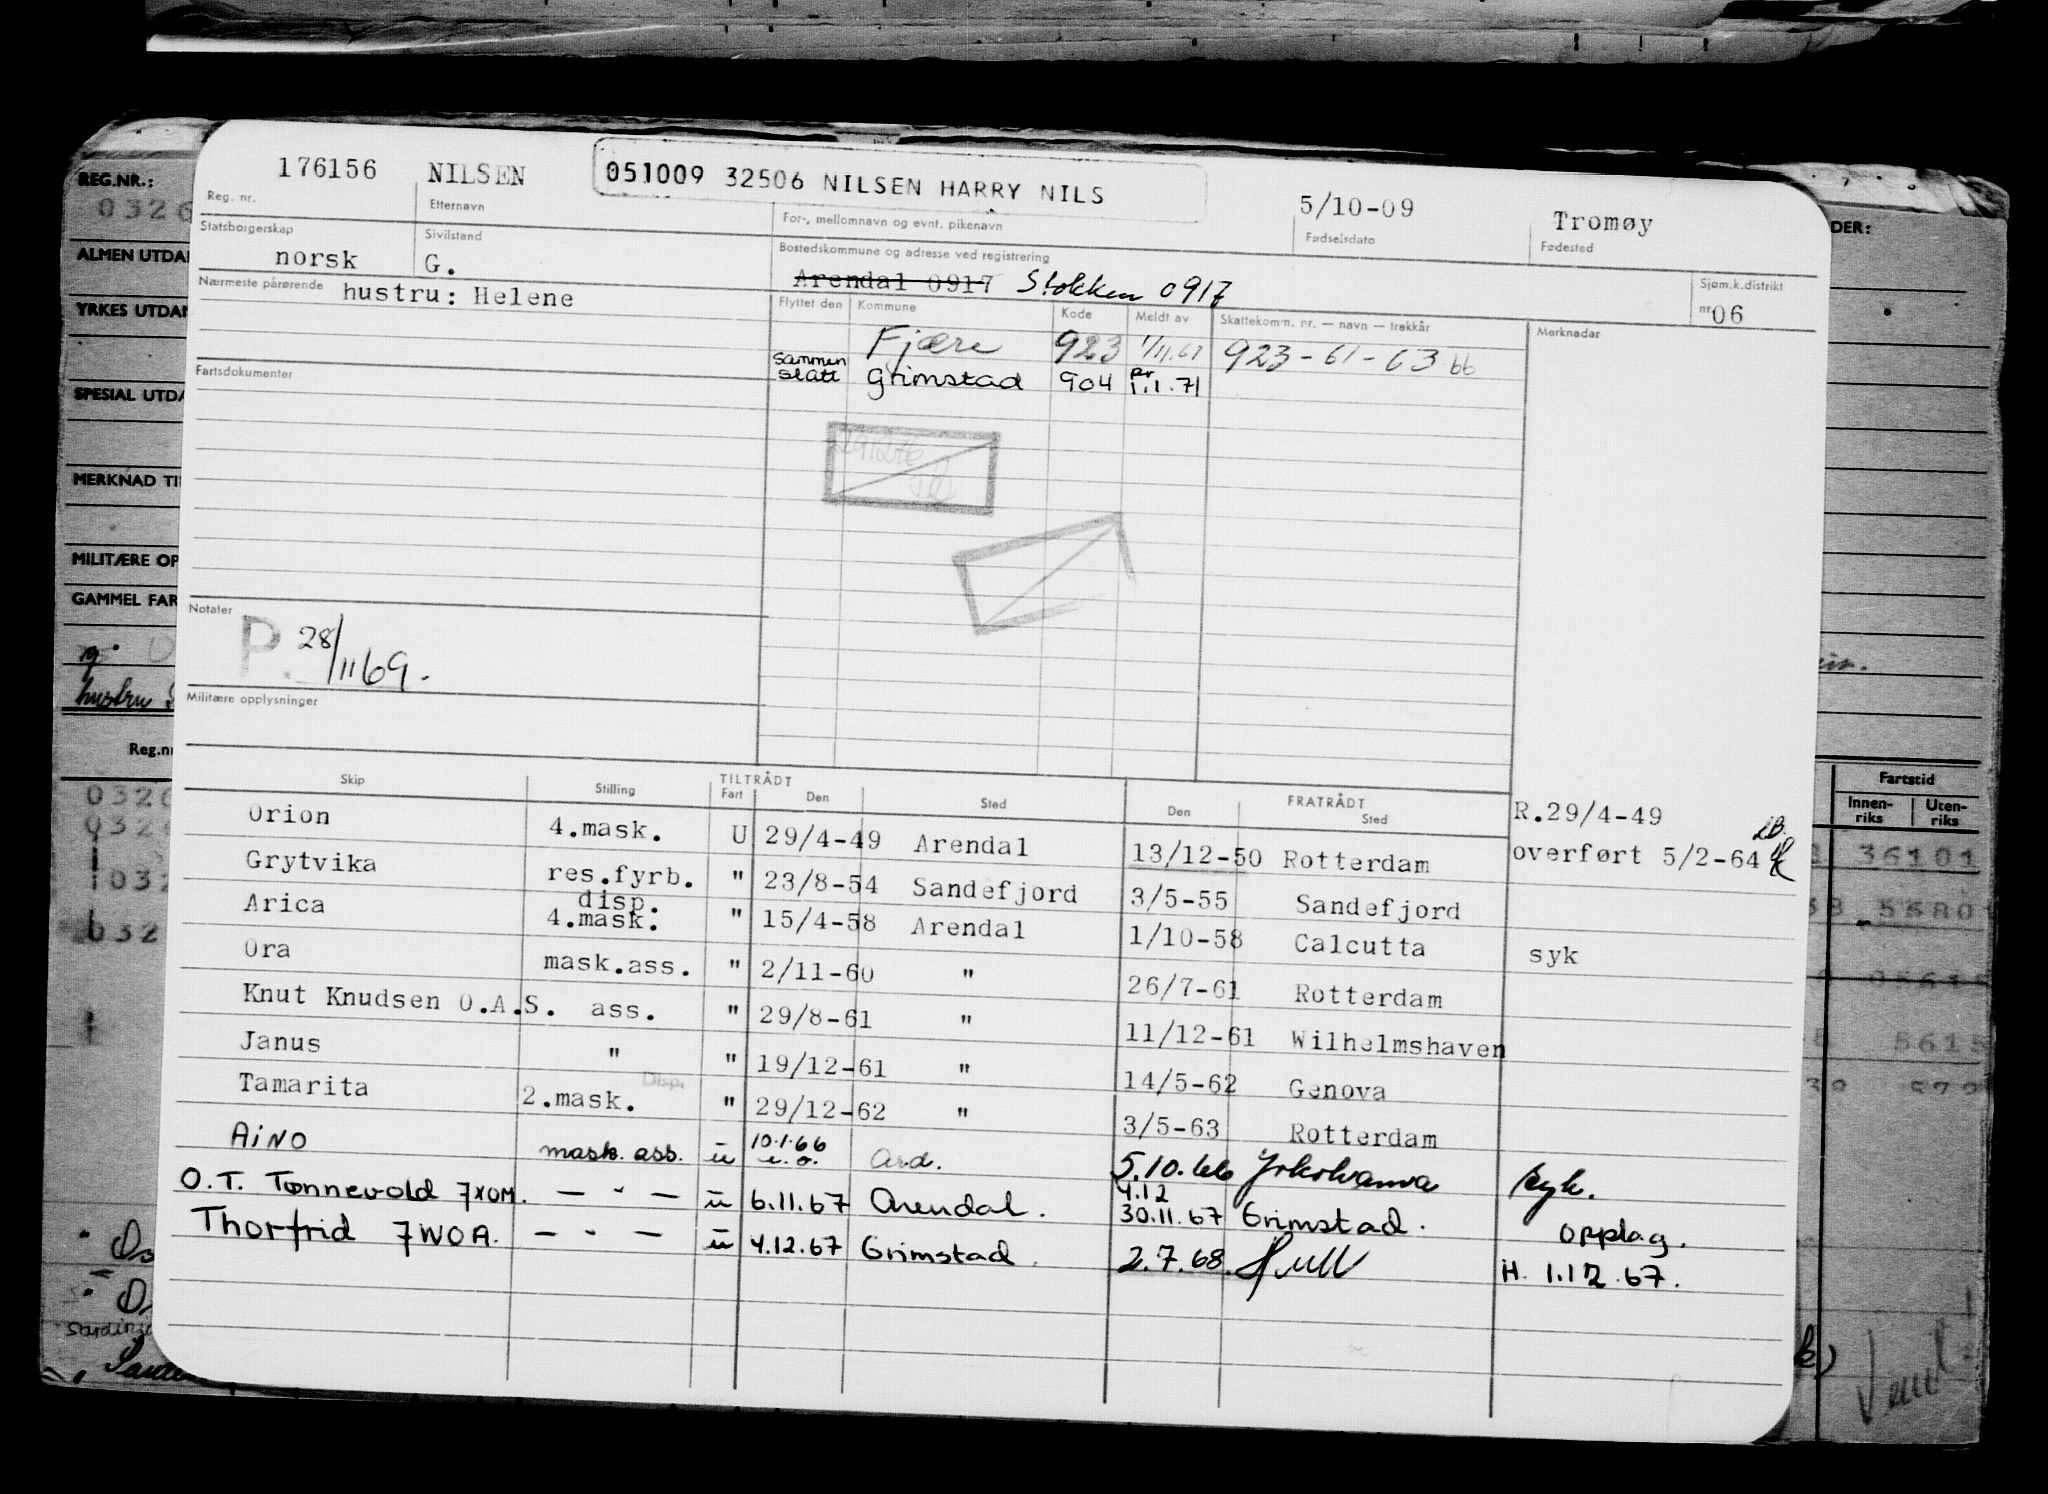 176156 NILSEN 051009 32506 NILSEN HARRY NILS 5/10-09 Tromøy
Reg. nr. Etternavn For-, mellomnavn og evnt. pikenavn Fødselsdato Fødested
Statsborgerskap Sivilstand Bostedskommune og adresse ved registrering
norsk G. Arendal 0917 Stokken 0917 Sjøm.k.distrikt
Nærmeste pårørende hustru: Helene nr 06
Flyttet den Kommune Kode Meldt av Skattekomm. nr. — navn — trekkår Merknader
Fjære 923 1/11.61 923-61-63 bb
sammen slått Grimstad 904 pr 1.1.71
Fartsdokumenter
Notater
P. 28/11 69.
Militære opplysninger
Skip Stilling TILTRÅDT FRATRÅDT
Fart Den Sted Den Sted
R.29/4-49
Orion 4.mask. U 29/4-49 Arendal 13/12-50 Rotterdam overført 5/2-64
Grytvika res.fyrb. " 23/8-54 Sandefjord 3/5-55 Sandefjord
Arica disp. 4.mask. " 15/4-58 Arendal 1/10-58 Calcutta syk
Ora mask.ass. " 2/11-60 " 26/7-61 Rotterdam
Knut Knudsen O.A.S. ass. " 29/8-61 " 11/12-61 Wilhelmshaven
Janus " " 19/12-61 " 14/5-62 Genova
Tamarita 2.mask. Disp. " 29/12-62 " 3/5-63 Rotterdam
AiNO mask. ass. u 10.1.66 u.o. Ard. 5.10.66 Yokohama syk.
O.T. Tønnevold 7XOM. — " — u 6.11.67 Arendal. 4.12 30.11.67 Grimstad. opplag.
Thorfrid 7WOA. — " — u 4.12.67 Grimstad. 2.7.68. Hull H. 1.12.67.
REG.NR.:
0326
ALMEN UTDA
YRKES UTDA
SPESIAL UTDA
MERKNAD TI
MILITÆRE OP
GAMMEL FAR
hustru
Reg.nr
DER:
Fartstid
Innen-riks Uten-riks
36101